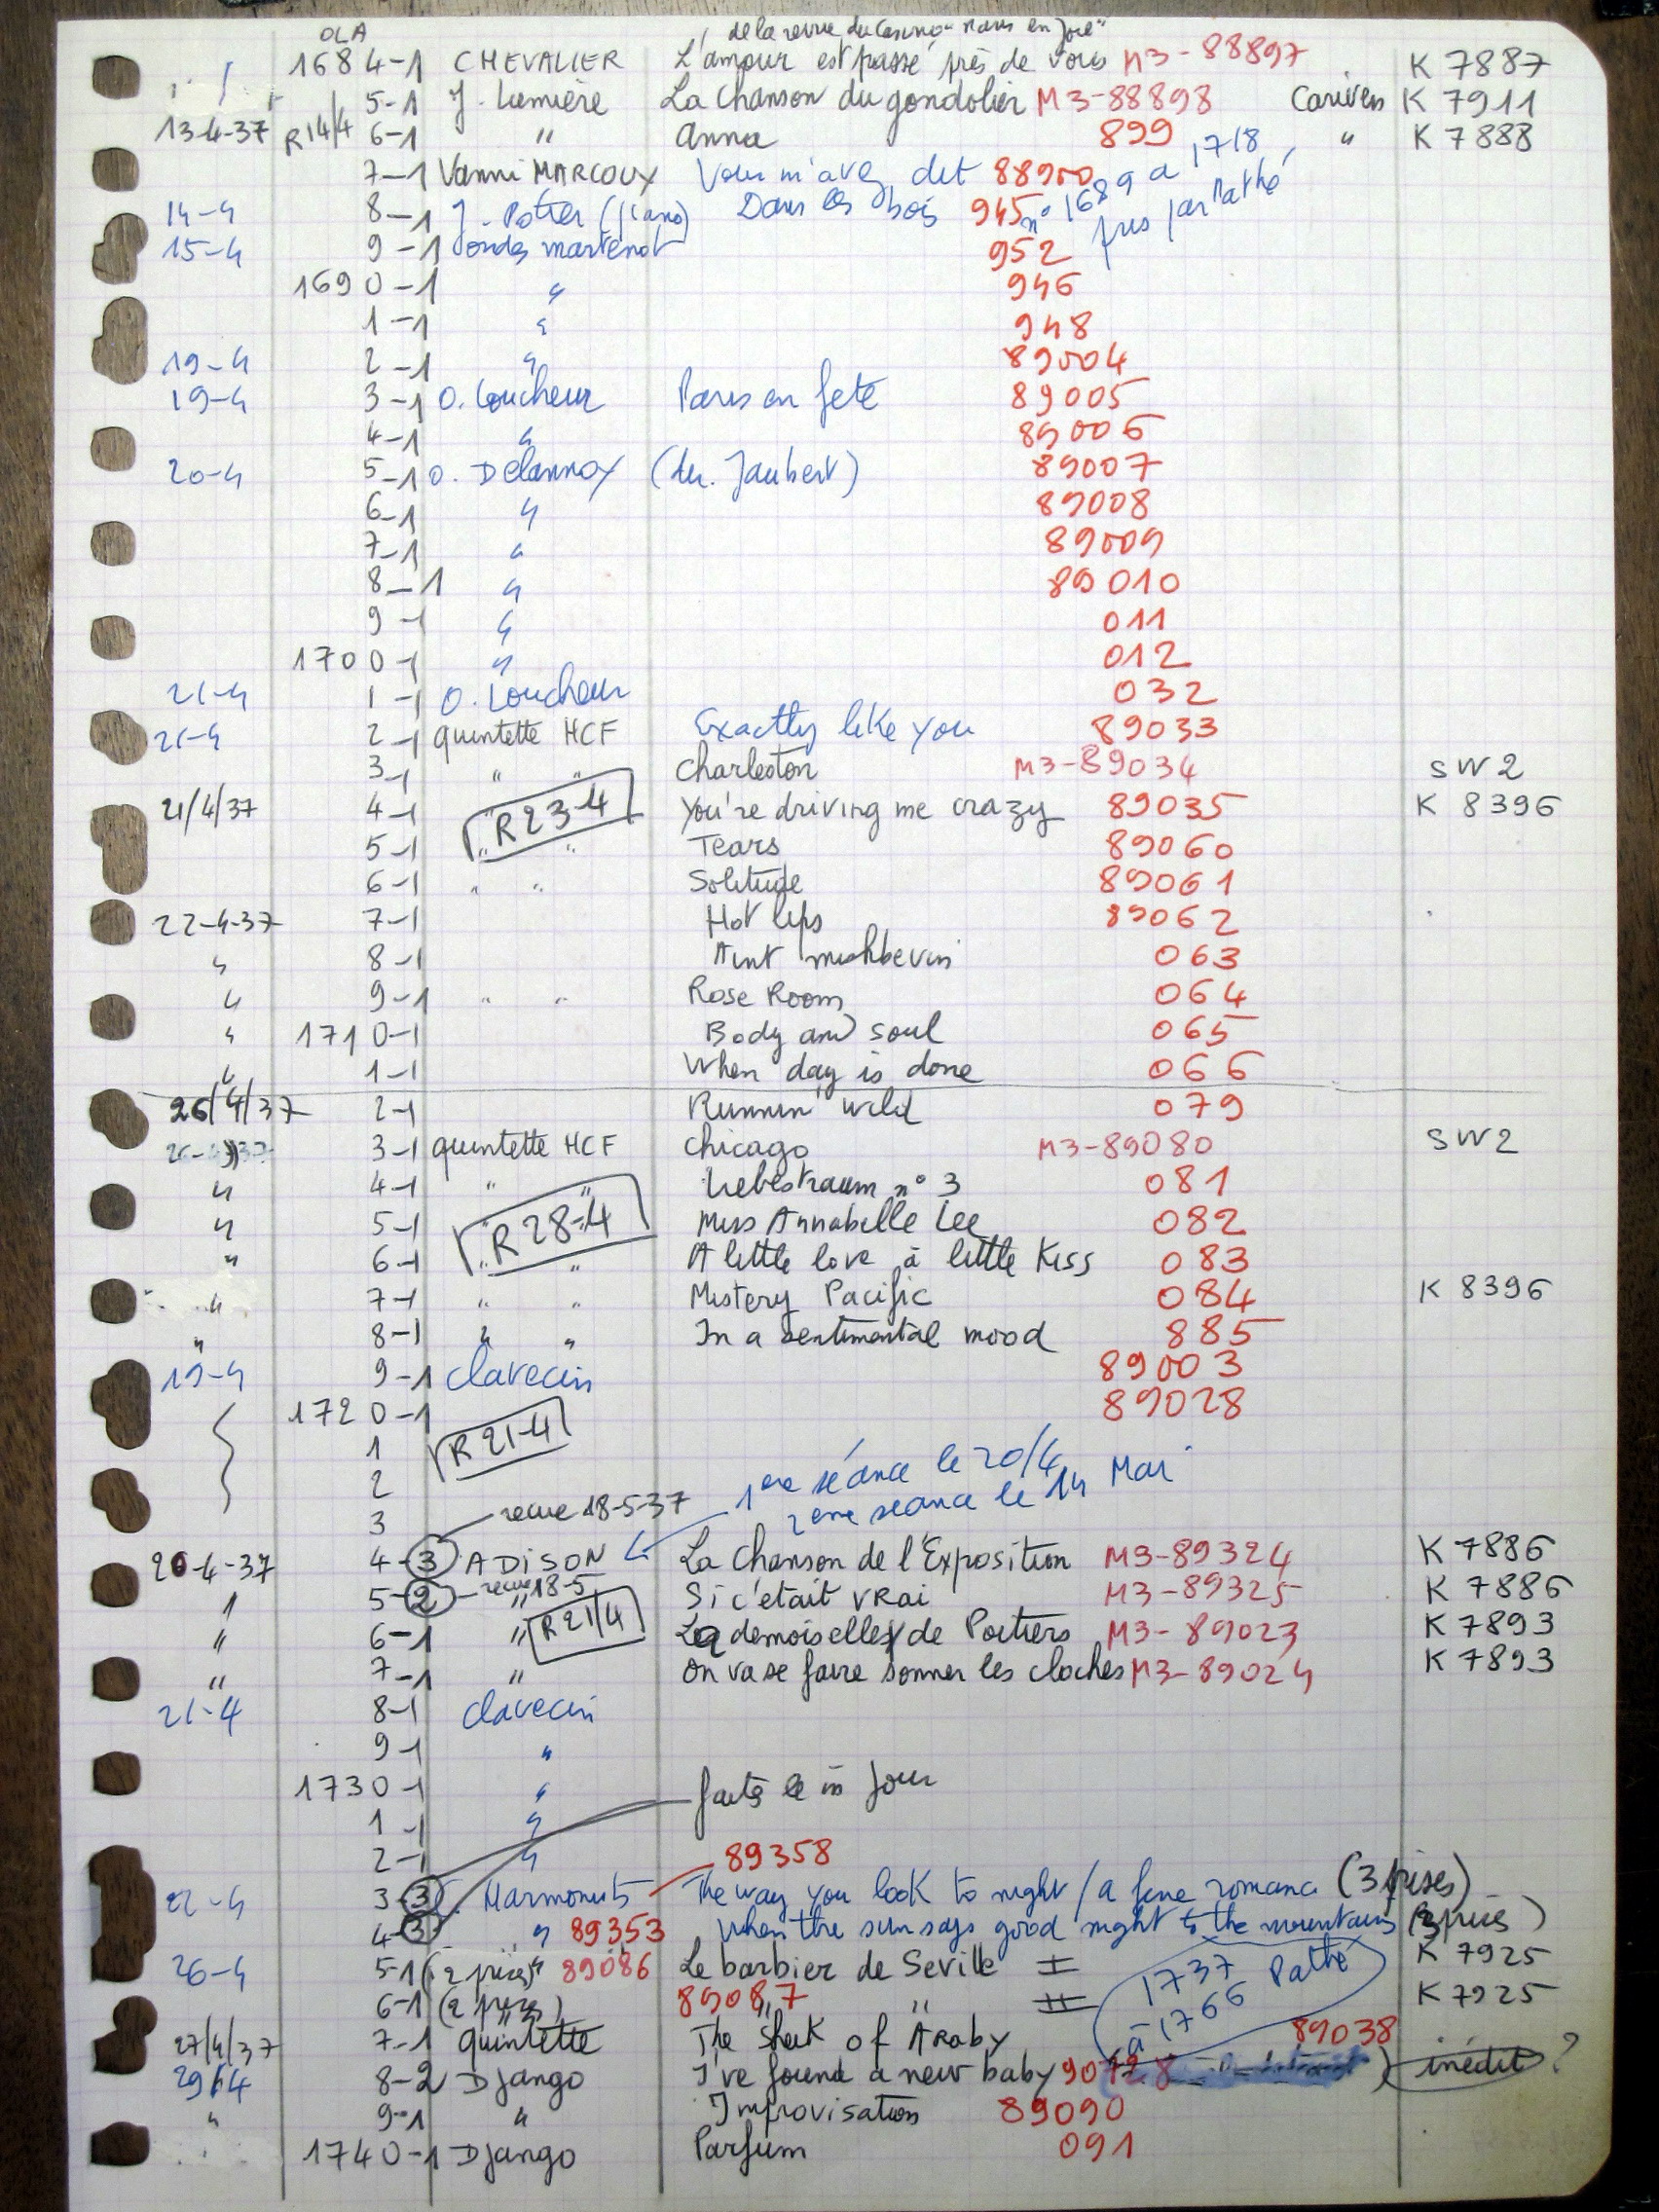 OLA
de la revue du Casino "Paris en Joie"
1684-1 CHEVALIER L'amour est passé près de vous M3-88897 K 7887
5-1 J. Lumière La chanson du gondolier M3-88898 Cariven K 7911
13-4-37 R14/4 6-1 " Anna 899 " K 7888
7-1 Vanni MARCOUX Vous m'avez dit 88900
n° 1689 a 1718 pris par Pathé
14-4 8-1 J. Potier (piano) Dans les bois 945
15-4 9-1 ondes martenot 952
1690-1 " 946
1-1 " 948
19-4 2-1 " 89004
19-4 3-1 O. Loucheur Paris en fete 89005
4-1 " 89006
20-4 5-1 O. Delannoy (dir. Jaubert) 89007
6-1 " 89008
7-1 " 89009
8-1 " 89010
9-1 " 011
1700-1 " 012
21-4 1-1 O. Loucheur 032
21-4 2-1 quintette HCF Exactly like you 89033
3-1 " " Charleston M3-89034 SW2
21/4/37 4-1 R23-4 You're driving me crazy 89035 K 8396
5-1 " " Tears 89060
6-1 " " Solitude 89061
22-4-37 7-1 Hot lips 89062
" 8-1 Aint mishbevin 063
" 9-1 " " Rose Room 064
" 1710-1 Body and soul 065
" 1-1 When day is done 066
26/4/37 2-1 Runnin' wild 079
26-4-37 3-1 quintette HCF Chicago M3-89080 SW2
" 4-1 " " Liebestraum n° 3 081
" 5-1 R28-4 Miss Annabelle Lee 082
" 6-1 " " A little love à little Kiss 083
" 7-1 " " Mistery Pacific 084 K 8396
" 8-1 " " In a sentimental mood 885
19-4 9-1 clavecin 89003
1720-1 89028
1 R21-4
2
1ere séance le 20/4
2eme seance le 14 Mai
3 recue 18-5-37
20-4-37 4-3 ADISON La Chanson de l'Exposition M3-89324 K 7886
" 5-2 recue 18-5 " Si c'était vrai M3-89325 K 7886
" 6-1 " R21/4 La demoiselle de Poitiers M3-89023 K 7893
" 7-1 " On va se faire sonner les cloches M3-89024 K 7893
21-4 8-1 clavecin
9-1 "
1730-1 " faits le m jour
1-1 "
2-1 " 89358
22-4 3-3 Marmonuts The way you look to night / a fine romance (3 prises)
4-3 " 89353 When the sun says good night to the mountains (3 prises)
26-4 5-1 (2 prises) " 89086 Le barbier de Seville I K 7925
1737 à 1766 Pathé
6-1 (2 prises) 89087 " " II K 7925
27/4/37 7-1 quintette The Sheik of Araby 89038
29/4 8-2 Django I've found a new baby inédit ?
" 9-1 " Improvisation 89090
1740-1 Django Parfum 091